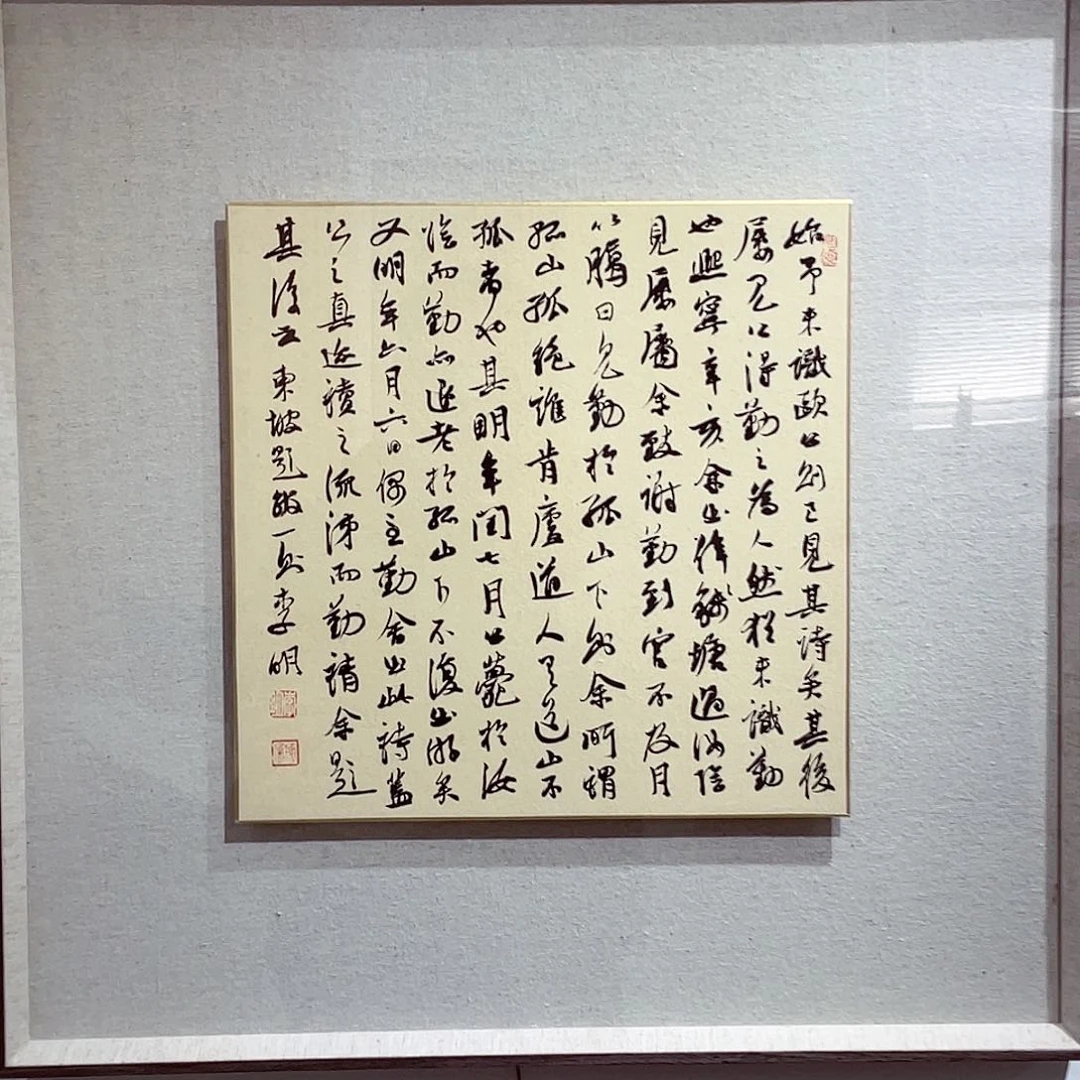 始予未識歐公則已見其詩矣其後
屢見公得勤之為人然猶未識勤
也熙寧辛亥余出倅錢塘過汝陰
見屢屬余致謝勤到官不及月
以臘日見勤於孤山下則余所謂
孤山孤絕誰肯廬道人有道山不
孤者也其明年閏七月公薨於汝
陰而勤亦退老於孤山下不復出游矣
又明年六月六日偶至勤舍出此詩蓋
公之真迹讀之流涕而勤請余題
其後云 東坡題跋一則 李明